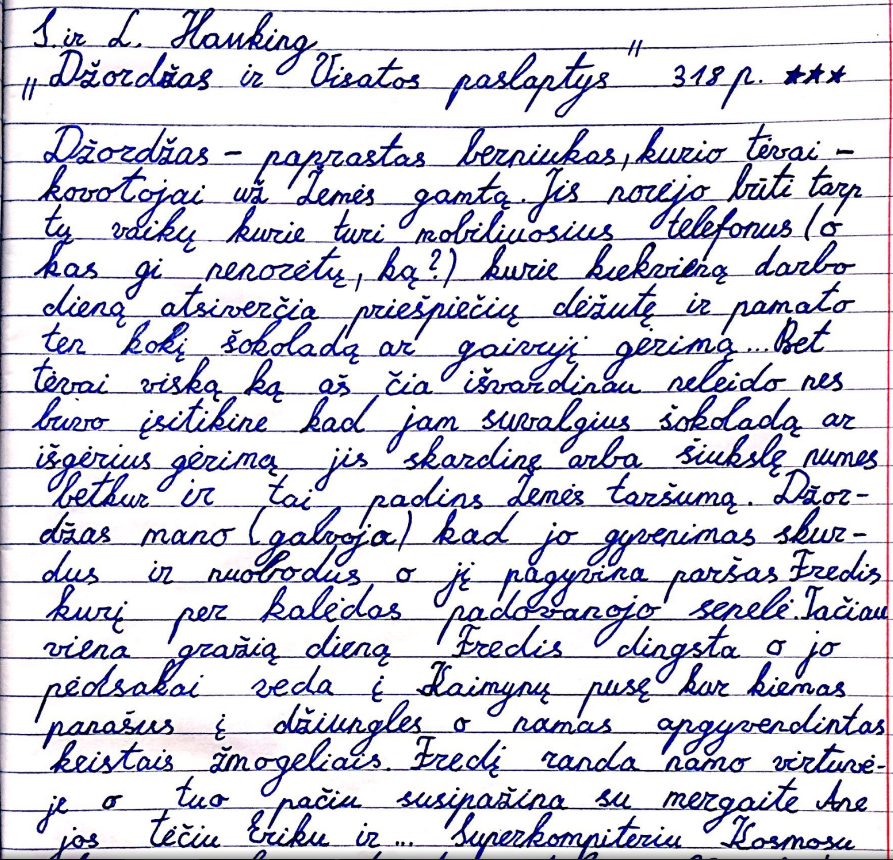 S. ir L. Hauking
„Džordžas ir Visatos paslaptys" 318 p. ★★★
Džordžas – paprastas berniukas, kurio tėvai –
kovotojai už Žemės gamtą. Jis norėjo būti tarp
tų vaikų kurie turi mobiliuosius telefonus (o
kas gi nenorėtų, ką?) kurie kiekvieną darbo
dieną atsiverčia priešpiečių dėžutę ir pamato
ten kokį šokoladą ar gaivųjį gėrimą... Bet
tėvai viską ką aš čia išvardinau neleido nes
buvo įsitikinę kad jam suvalgius šokoladą ar
išgėrius gėrimą jis skardinę arba šiukšlę numes
betkur ir tai padins Žemės taršumą. Džor-
džas mano (galvoja) kad jo gyvenimas skur-
dus ir nuobodus o jį pagyvina paršas Fredis
kurį per kalėdas padovanojo senelė. Tačiau
viena gražią dieną Fredis dingsta o jo
pėdsakai veda į Kaimynų pusę kur kiemas
panašus į džiungles o namas apgyvendintas
keistais žmogeliais. Fredį randa namo virtuvė-
je o tuo pačiu susipažina su mergaite Ane
jos tėčiu Eriku ir ... Superkompiteriu Kosmosu